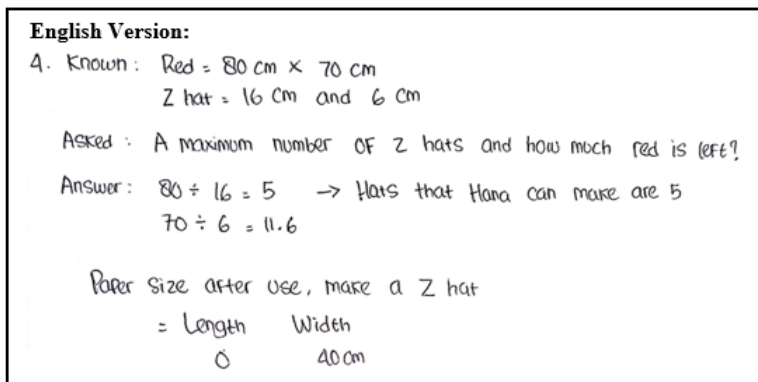 English Version:
4. Known : Red = 80 cm × 70 cm
Z hat = 16 cm and 6 cm
Asked : A maximum number of Z hats and how much red is left?
Answer : 80 ÷ 16 = 5 → Hats that Hana can make are 5
70 ÷ 6 = 11.6
Paper size after use, make a Z hat
= Length Width
0 40 cm